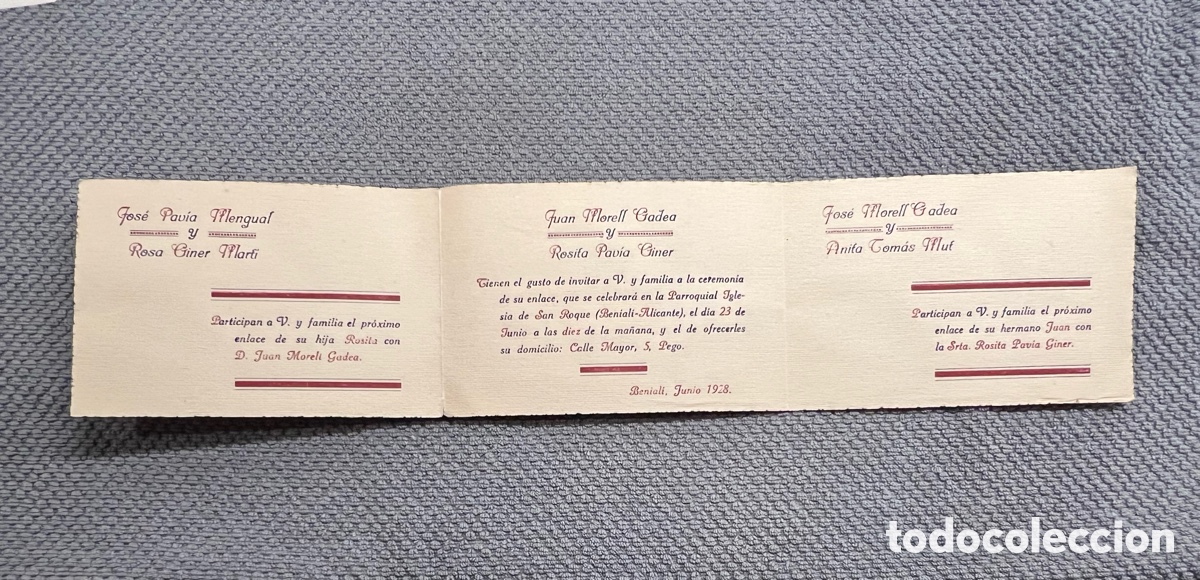 José Pavía Mengual
y
Rosa Giner Martí
Participan a V. y familia el próximo
enlace de su hija Rosita con
D. Juan Morell Gadea.
Juan Morell Gadea
y
Rosita Pavía Giner
Tienen el gusto de invitar a V. y familia a la ceremonia
de su enlace, que se celebrará en la Parroquial Igle-
sia de San Roque (Beniali-Alicante), el día 23 de
Junio a las diez de la mañana, y el de ofrecerles
su domicilio: Calle Mayor, 5, Pego.
Beniali, Junio 1928.
José Morell Gadea
y
Anita Tomás Mut
Participan a V. y familia el próximo
enlace de su hermano Juan con
la Srta. Rosita Pavía Giner.
todocoleccion